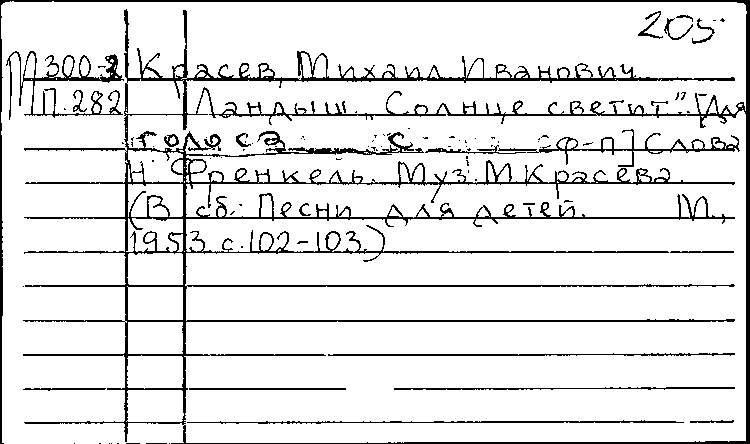 205
М300-2 Красев, Михаил Иванович.
П.282 Ландыш. „Солнце светит". [Для
голоса с ф-п] Слова
Н. Френкель. Муз. М. Красева.
(В сб.: Песни для детей. М.,
1953. с.102-103.)